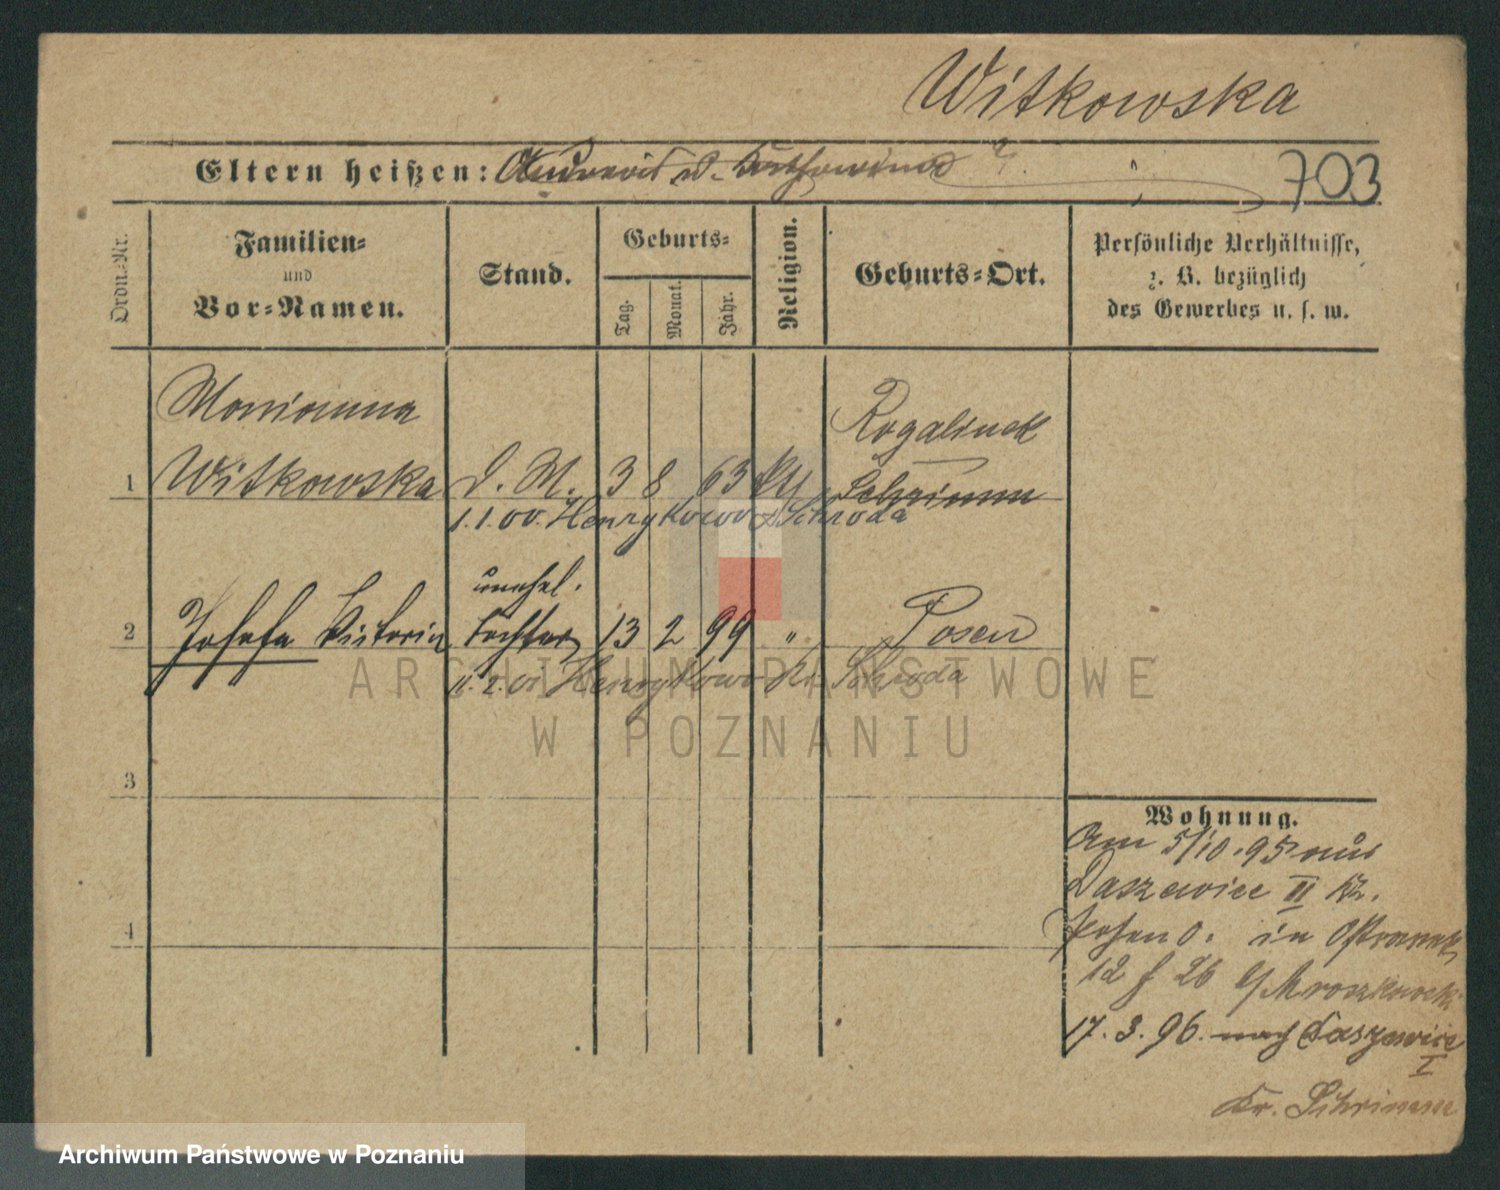 Witkowska
Eltern heißen: Andreas u. Katharina
703
Ordn.-Nr.
Familien-
und
Vor-Namen.
Stand.
Geburts-
Tag.
Monat.
Jahr.
Religion.
Geburts-Ort.
Persönliche Verhältnisse,
z. B. bezüglich
des Gewerbes u. s. w.
Marianna
Rogalinek
1 Witkowska d. M. 3 8 63 Schrimm
1.1.00. Henrykowo Schroda
unehel.
2 Josefa Victoria Tochter 13 2 99 " Posen
Henrykowo Kr. Schroda
ARCHIWUM PAŃSTWOWE
W POZNANIU
3
Wohnung.
Am 5/10.95 aus
Daszewice II Kr.
4
Posen O. in Ostrowek
12 f 26 b/ Mroszkowski
17.3.96. nach Daszewice
I
Kr. Schrimm
Archiwum Państwowe w Poznaniu